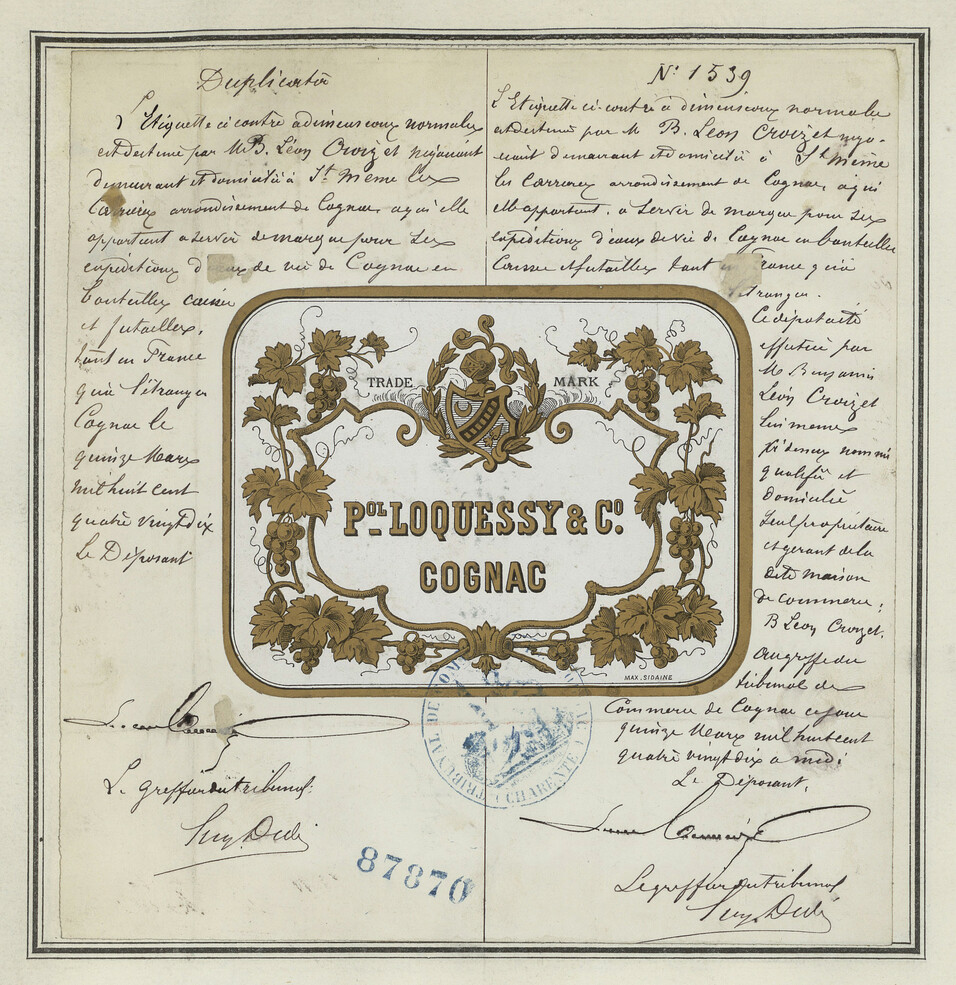 Duplicata
L'Etiquette ci contre a dimensions normales
est destiné par M B. Léon Croizet négociant
demeurant et domicilié à St Même les
Carrières arrondissement de Cognac, a qui elle
appartient a servir de marque pour ses
expéditions d'eaux de vie de Cognac en
bouteilles caisses
et futailles,
tant en France
qu'à l'étranger
Cognac le
quinze Mars
mil huit cent
quatre vingt dix
Le Déposant
Le greffier du tribunal:
N° 1539
L'Etiquette ci contre a dimensions normales
est destiné par M B. Léon Croizet négo-
ciant demeurant et domicilié à St Même
les Carrières arrondissement de Cognac, a qui
elle appartient, a servir de marque pour ses
expéditions d'eaux de vie de Cognac en bouteilles
Caisses et futailles tant en France qu'à
l'étranger.
Ce dépot a été
effectué par
M Benjamin
Léon Croizet
lui même
ci dessus nommé
qualifié et
domicilié
seul propriétaire
et gérant de la
dite maison
de commerce:
B Léon Croizet,
au greffe du
tribunal de
Commerce de Cognac ce jour
quinze Mars mil huit cent
quatre vingt dix a midi
Le Déposant,
Le greffier du tribunal
TRADE MARK
POL LOQUESSY & CO
COGNAC
MAX. SIDAINE
TRIBUNAL DE COM
CHARENTE
87870